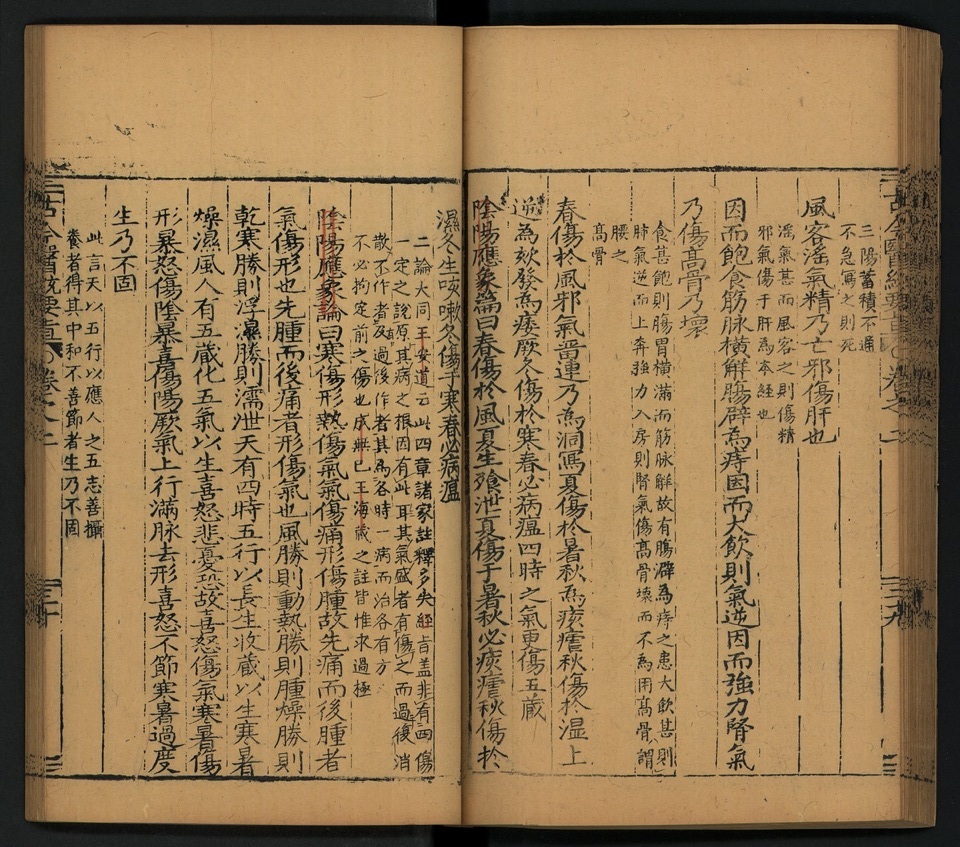 三陽蓄積不通
不急寫之則死
風客滛氣精乃亡邪傷肝也
滛氣甚而風客之則傷精
邪氣傷于肝為本經也
因而飽食筋脉橫解腸澼為痔因而大飲則氣逆因而強力腎氣
乃傷髙骨乃壞
食甚飽則腸胃橫滿而筋脉解故有腸澼為痔之患大飲甚則
肺氣逆而上奔強力入房則腎氣傷髙骨壞而不為用髙骨謂
腰之
髙骨
春傷於風邪氣畱連乃為洞寫夏傷於暑秋為痎瘧秋傷於湿上
逆為欬發為痿厥冬傷於寒春必病瘟四時之氣更傷五蔵
陰陽應象論曰春傷於風夏生飱泄夏傷于暑秋必痎瘧秋傷於
古今醫經要旨 卷之二
三十九
濕冬生咳嗽冬傷于寒春必病瘟
二論大同王安道云此四章諸家註釋多失經旨盖非有四傷
一定之說原其病之根因有此耳其氣盛者有傷之而過後消
散不作者及過後作者其為各時一病而治各有方
不必拘定前之傷也成無已王海蔵之註皆惟求過極
陰陽應象論曰寒傷形熱傷氣氣傷痛形傷腫故先痛而後腫者
氣傷形也先腫而後痛者形傷氣也風勝則動熱勝則腫燥勝則
乾寒勝則浮濕勝則濡泄天有四時五行以長生收蔵以生寒暑
燥濕風人有五蔵化五氣以生喜怒悲憂恐故喜怒傷氣寒暑傷
形暴怒傷陰暴喜傷陽厥氣上行滿脉去形喜怒不節寒暑過度
生乃不固
此言天以五行以應人之五志善攝
養者得其中和不善節者生乃不固